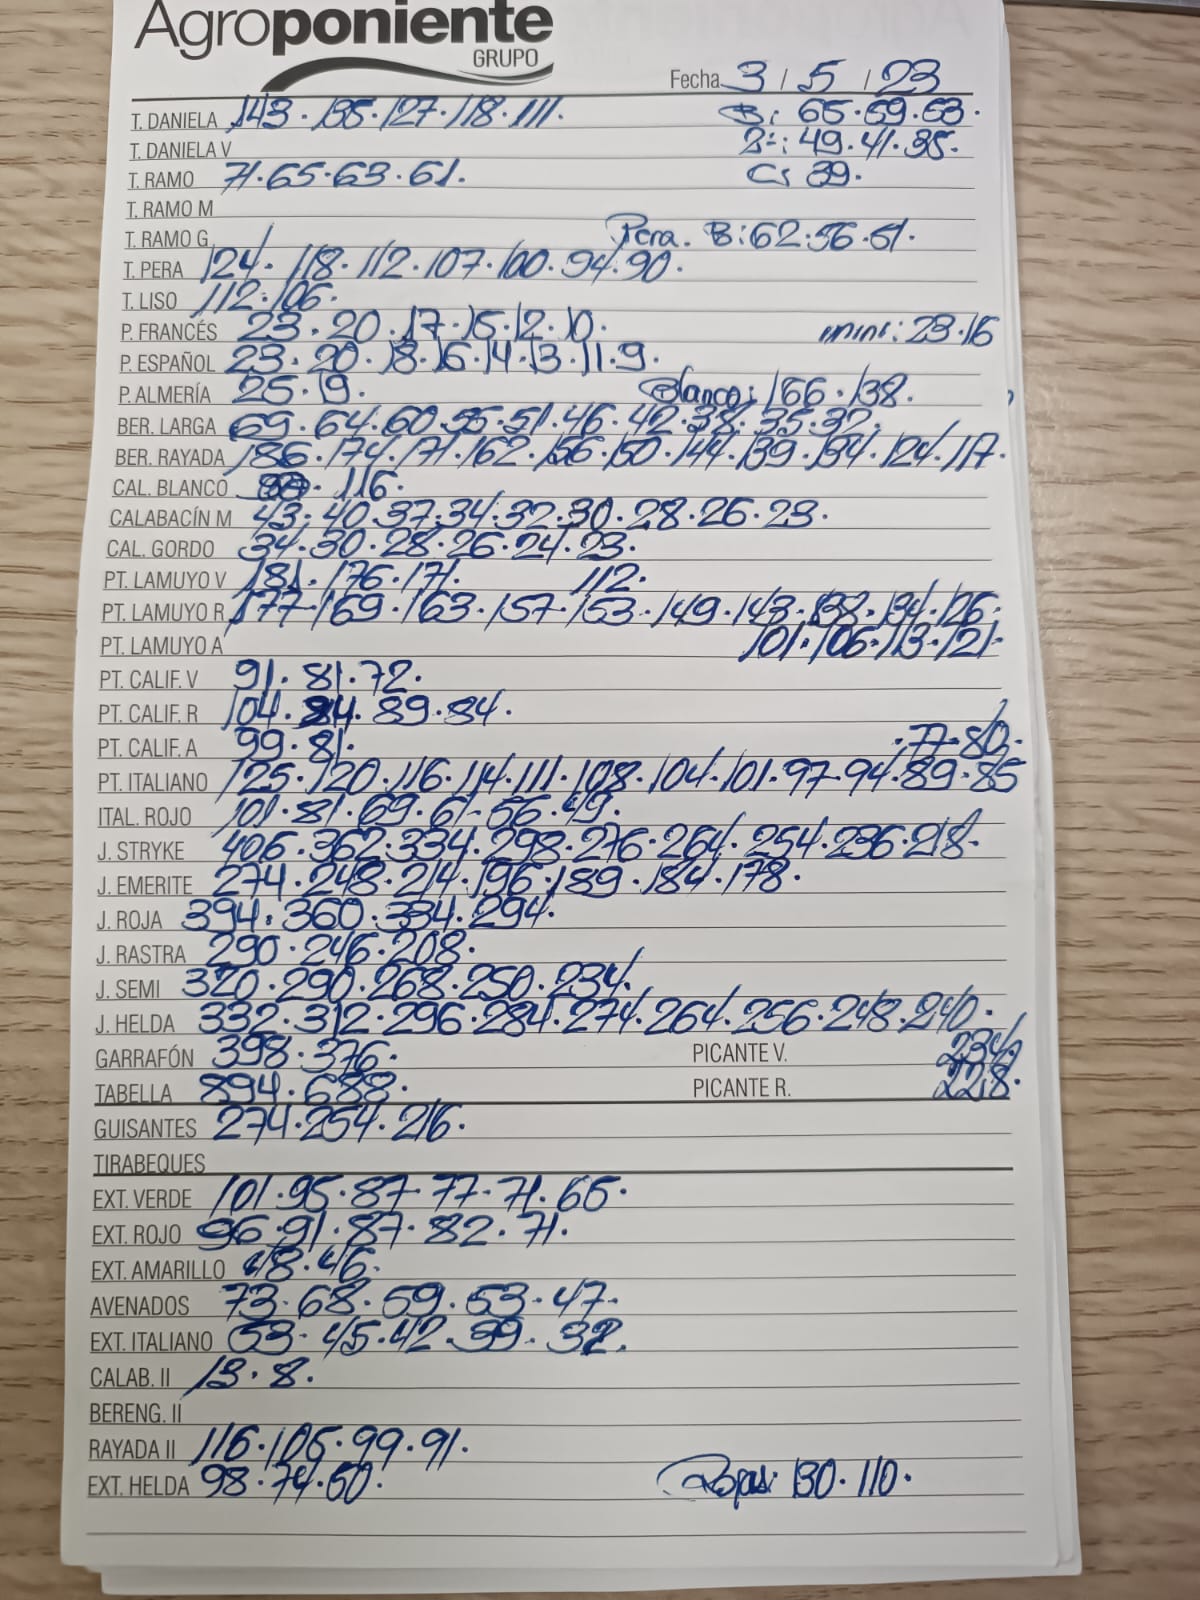 Agroponiente
GRUPO
Fecha 3 / 5 / 23
T. DANIELA 143. 135. 127. 118. 111. B: 65. 59. 53.
T. DANELA V 2ª: 49. 41. 35.
T. RAMO 71. 65. 63. 61. C: 39.
T. RAMO M
T. RAMO G Pera. B: 62. 56. 51.
T. PERA 124. 118. 112. 107. 100. 94. 90.
T. LISO 112. 106.
P. FRANCÉS 23. 20. 17. 15. 12. 10. mini: 23. 16
P. ESPAÑOL 23. 20. 18. 16. 14. 13. 11. 9.
P. ALMERÍA 25. 19. Blanca: 166. 138.
BER. LARGA 69. 64. 60. 55. 51. 46. 42. 38. 35. 32.
BER. RAYADA 186. 174. 171. 162. 156. 150. 144. 139. 134. 124. 117.
CAL. BLANCO 116.
CALABACÍN M 43. 40. 37. 34. 32. 30. 28. 26. 23.
CAL. GORDO 34. 30. 28. 26. 24. 23.
PT. LAMUYO V 181. 176. 171. 112.
PT. LAMUYO R 177. 169. 163. 157. 153. 149. 143. 138. 134. 126.
PT. LAMUYO A 101. 106. 113. 121.
PT. CALIF. V 91. 81. 72.
PT. CALIF. R 104. 94. 89. 84.
PT. CALIF. A 99. 81. .77. 80.
PT. ITALIANO 125. 120. 116. 114. 111. 108. 104. 101. 97. 94. 89. 85
ITAL. ROJO 101. 81. 69. 61. 56. 49.
J. STRYKE 406. 362. 334. 298. 276. 264. 254. 236. 218.
J. EMERITE 274. 248. 214. 196. 189. 184. 178.
J. ROJA 394. 360. 334. 294.
J. RASTRA 290. 246. 208.
J. SEMI 320. 290. 268. 250. 234.
J. HELDA 332. 312. 296. 284. 274. 264. 256. 248. 240.
GARRAFÓN 398. 376. PICANTE V. 234.
TABELLA 894. 688. PICANTE R. 228.
GUISANTES 274. 254. 216.
TIRABEQUES
EXT. VERDE 101. 95. 87. 77. 71. 65.
EXT. ROJO 96. 91. 87. 82. 71.
EXT. AMARILLO 48. 46.
AVENADOS 73. 68. 59. 53. 47.
EXT. ITALIANO 53. 45. 42. 39. 32.
CALAB. II 13. 8.
BERENG. II
RAYADA II 116. 105. 99. 91.
EXT. HELDA 98. 74. 50. Rojas: 130. 110.